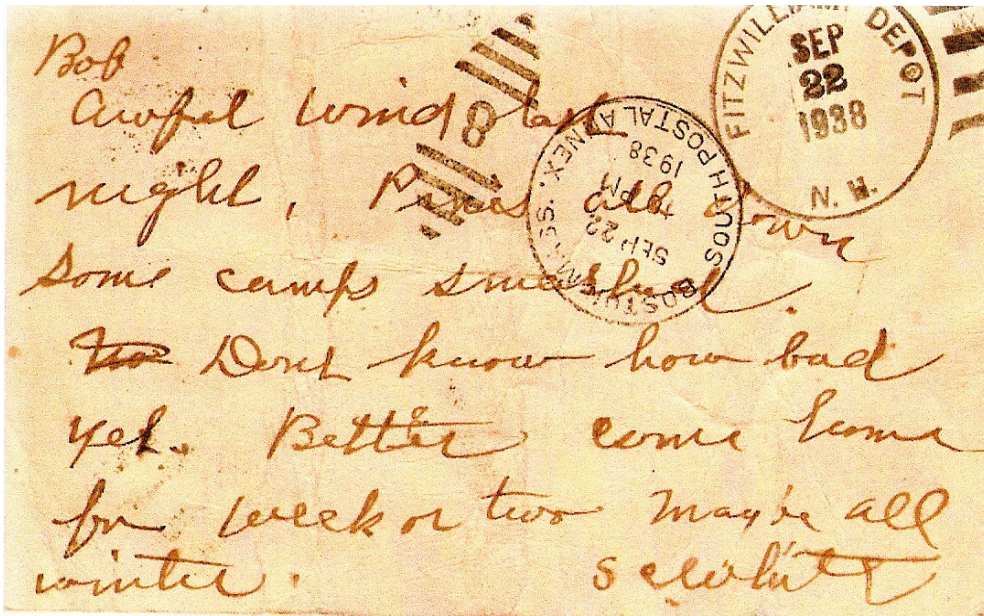 Bob
Awful wind last
night, Pines all down
some camps smashed.
Dont know how bad
yet. Better come home
for week or two maybe all
winter.
FITZWILLIAM DEPOT
SEP
22
1938
N. H.
8
BOSTON MASS.
SOUTH POSTAL ANNEX.
SEP 22
PM
1938